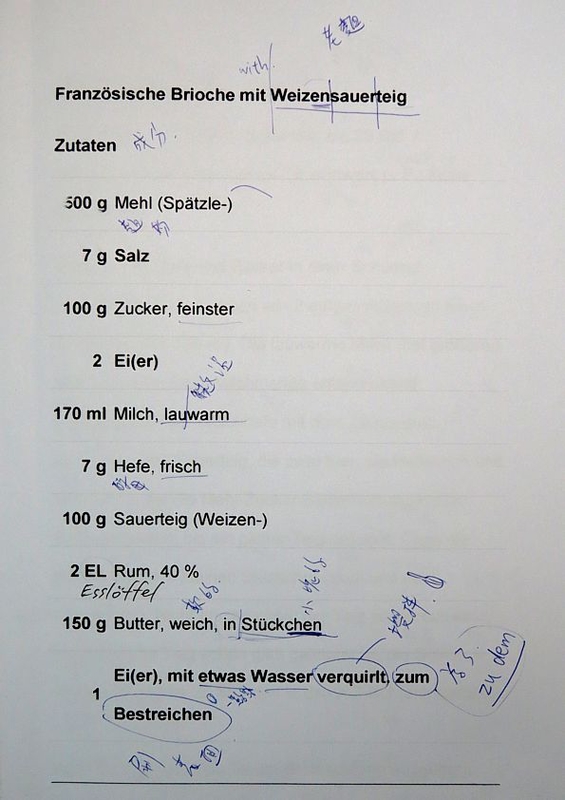 with
Französische Brioche mit Weizensauerteig
Zutaten 成分.
500 g Mehl (Spätzle-)
7 g Salz
100 g Zucker, feinster
2 Ei(er)
170 ml Milch, lauwarm
7 g Hefe, frisch
100 g Sauerteig (Weizen-)
2 EL Rum, 40 %
Esslöffel
150 g Butter, weich, in Stückchen
1 Ei(er), mit etwas Wasser verquirlt, zum
Bestreichen
为了?
zu dem